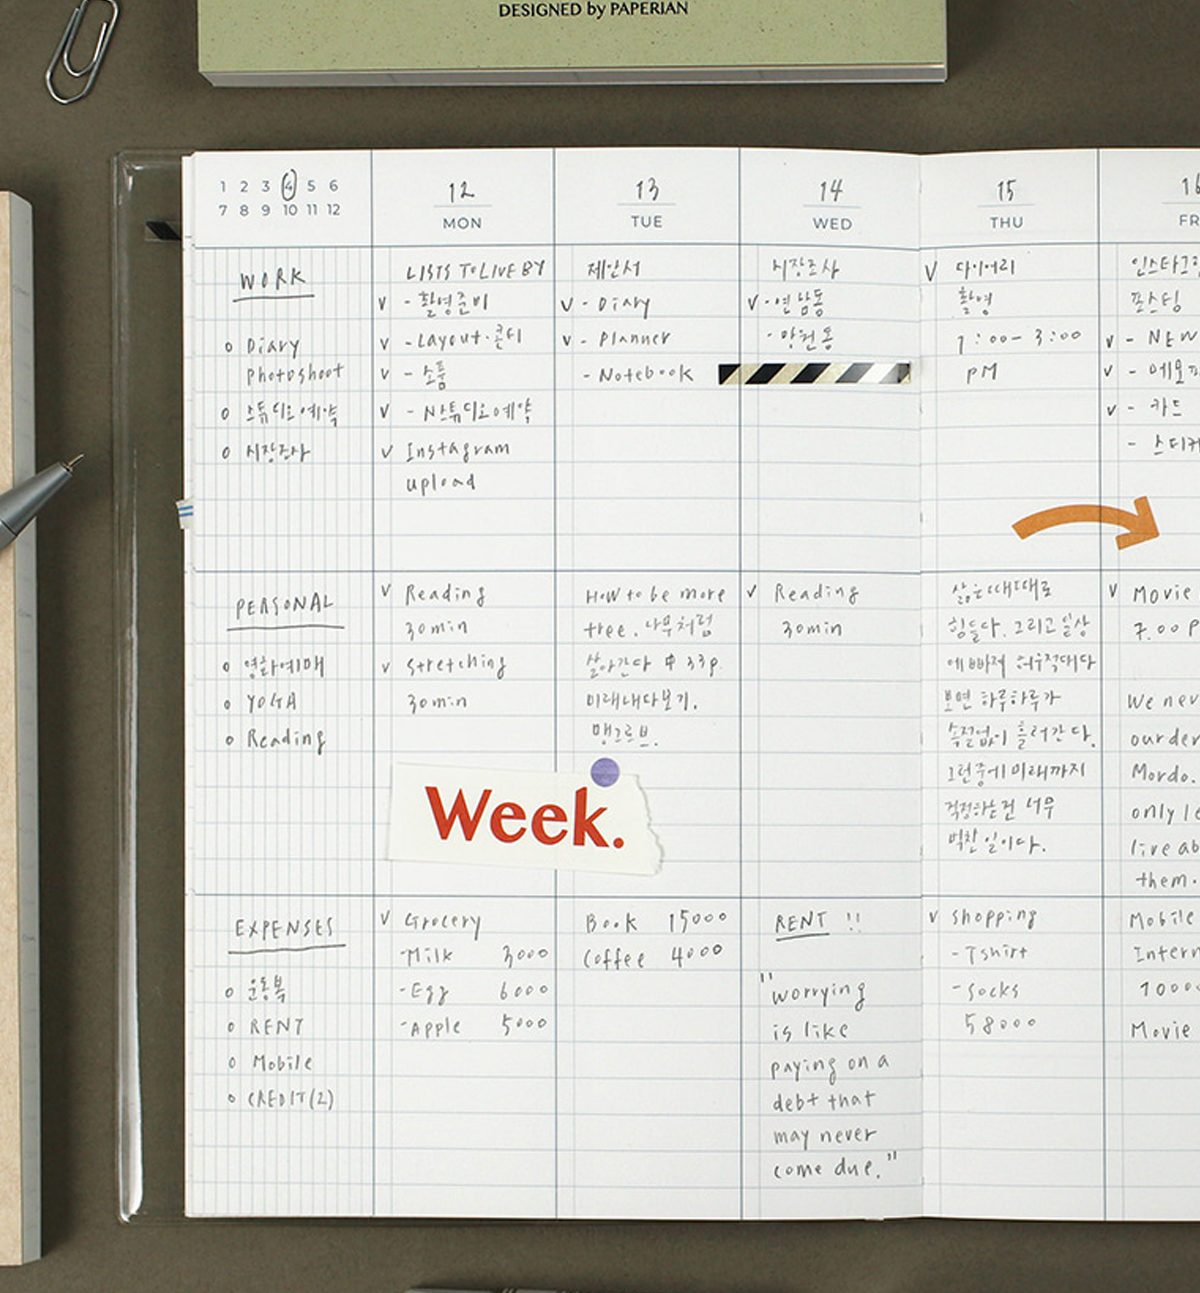 DESIGNED by PAPERIAN
1 2 3 4 5 6
7 8 9 10 11 12
WORK
o Diary
Photoshoot
o 스튜디오예약
o 시장조사
PERSONAL
o 영화예매
o YOGA
o Reading
EXPENSES
o 운동복
o RENT
o Mobile
o CREDIT(2)
12
MON
LISTS TO LIVE BY
v - 촬영준비
v - Layout·콘티
v - 소품
v - N스튜디오예약
v Instagram
upload
v Reading
30min
v Stretching
30min
Week.
v Grocery
-Milk 3000
-Egg 6000
-Apple 5000
13
TUE
제안서
v - Diary
v - Planner
- Notebook
How to be more
tree. 나무처럼
살아간다 中 33p.
미래내다보기.
맹그로브.
Book 15000
Coffee 4000
14
WED
시장조사
v - 연남동
- 망원동
v Reading
30min
RENT !!
"worrying
is like
paying on a
debt that
may never
come due."
15
THU
v 다이어리
촬영
1:00- 3:00
PM
삶은 때때로
힘들다. 그리고 일상
에 빠져 허우적대다
보면 하루하루가
속절없이 흘러간다.
그런중에 미래까지
걱정하는건 너무
벅찬 일이다.
v shopping
- Tshirt
- socks
58000
16
FR
인스타그
포스팅
v - NEW
v - 메모
v - 카드
- 스티커
v Movie
7.00 P
We nev
our der
Mordo.
only le
live ab
them.
Mobile
Intern
Movie